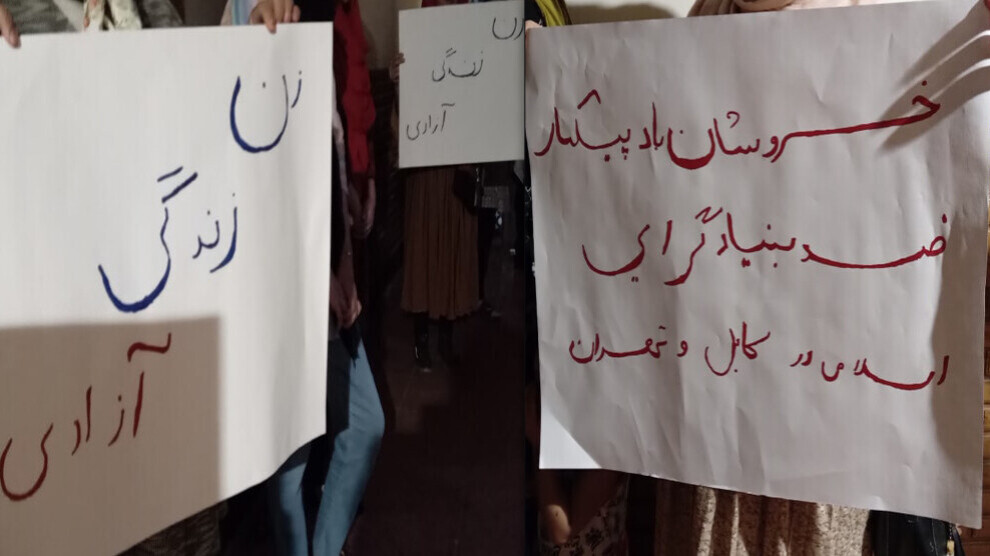 زن
زندگی
آزادی
زن
زندگی
آزادی
خروشان باد پیکار
ضد بنیادگرایي
اسلامی در کابل و تهران